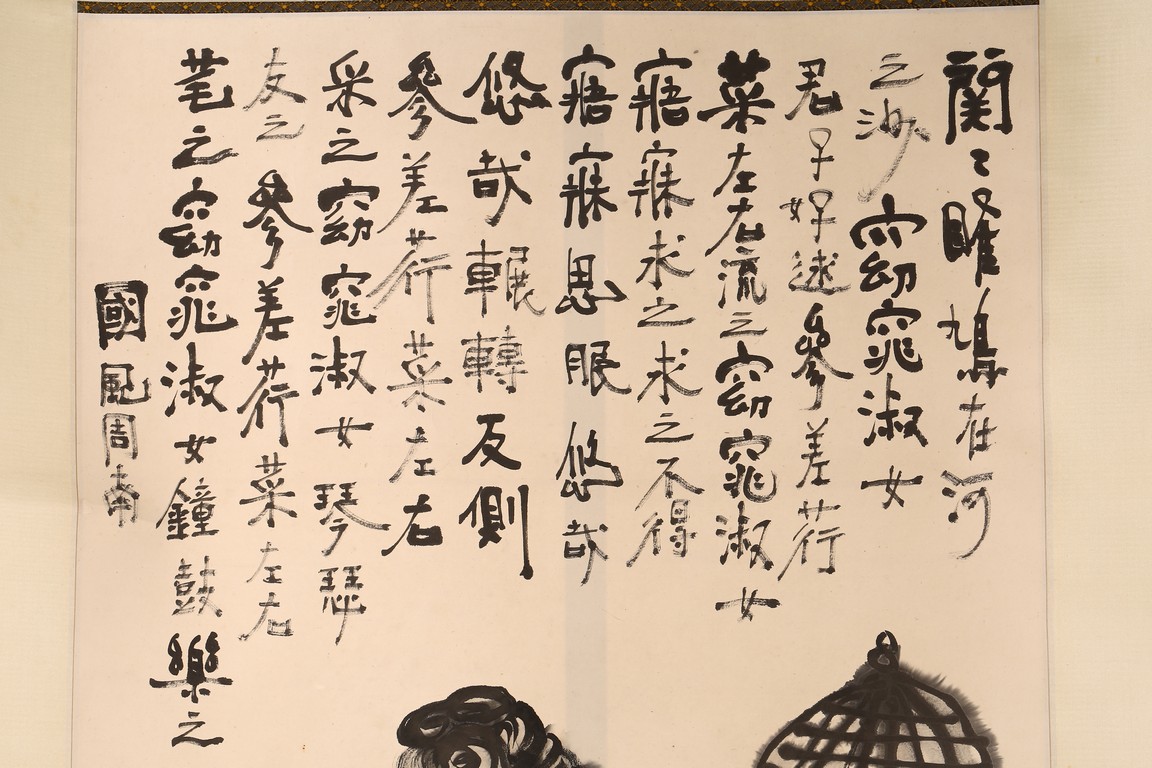 關〻雎鳩在河
之沙窈窕淑女
君子好逑參差荇
菜左右流之窈窕淑女
寤寐求之求之不得
寤寐思眠悠哉
悠哉輾轉反側
參差荇菜左右
采之窈窕淑女琴瑟
友之參差荇菜左右
芼之窈窕淑女鐘鼓樂之
國風周南